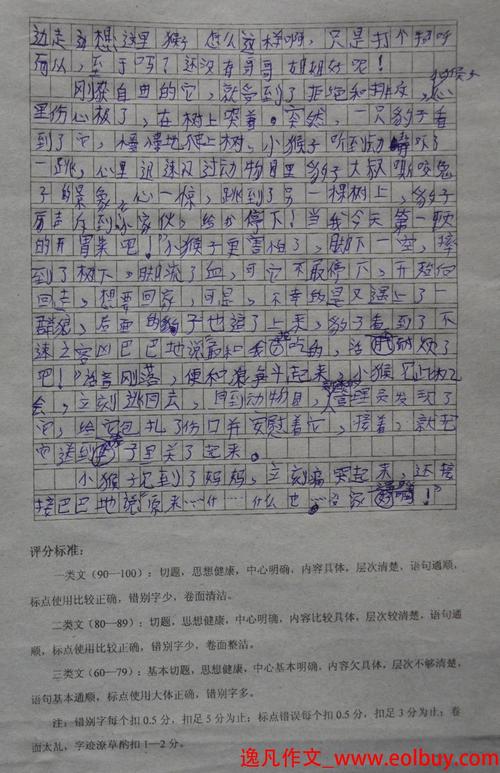 边走边想这里猴子怎么这样啊，只是打个招呼
而以，至于吗？还没有哥哥姐姐好呢！
刚获自由的它，就受到了拒绝和排放，心
里伤心极了，在树上哭着。突然，一只豹子看
到了它，慢慢地爬上树，小猴子听到动静吓了
一跳，心里迅速闪过动物目里豹子大叔嘶咬兔
子的景象，心一惊，跳到了另一棵树上，豹子
厉声斥到小家伙，给我停下！当我今天第一顿
的开胃菜吧！"小猴子更害怕了，脚下一空，摔
到了树下，脚流了血，可它不敢停下，开始向
回走，想要回家，可是，不幸的是又遇上了一
群狼，后面的豹子也追了上来，豹子看到了不
速之客凶巴巴地说敢和我吃的，活的烦了
吧！"话音刚落，便和狼群斗起来，小猴见机
会，立刻逃回去，回到动物目，管理员发现了
它，给它包扎了伤口并安慰着它，接着，就把
它送到子里关了起来。
小猴子见到了妈妈，立刻痛哭起来，还
巴巴地说"原来……什么也……家好啊！"
评分标准：
一类文（90—100）：切题，思想健康，中心明确，内容具体，层次清楚，语句通顺，
标点使用比较正确，错别字少，卷面清洁。
二类文（80—89）：切题，思想健康，中心明确，内容比较具体，层次较清楚，语句通
顺，标点使用比较正确，错别字少，卷面整洁。
三类文（60—79）：基本切题，思想健康，中心基本明确，内容欠具体，层次不够清楚，
语句基本通顺，标点使用大体正确，错别字多。
注：错别字每个扣 0.5 分，扣足 5 分为止；标点错误每个扣 0.5 分，扣足 3 分为止；卷
面太乱，字迹潦草酌扣 1—2 分。
逸凡作文_www.eolbuy.com